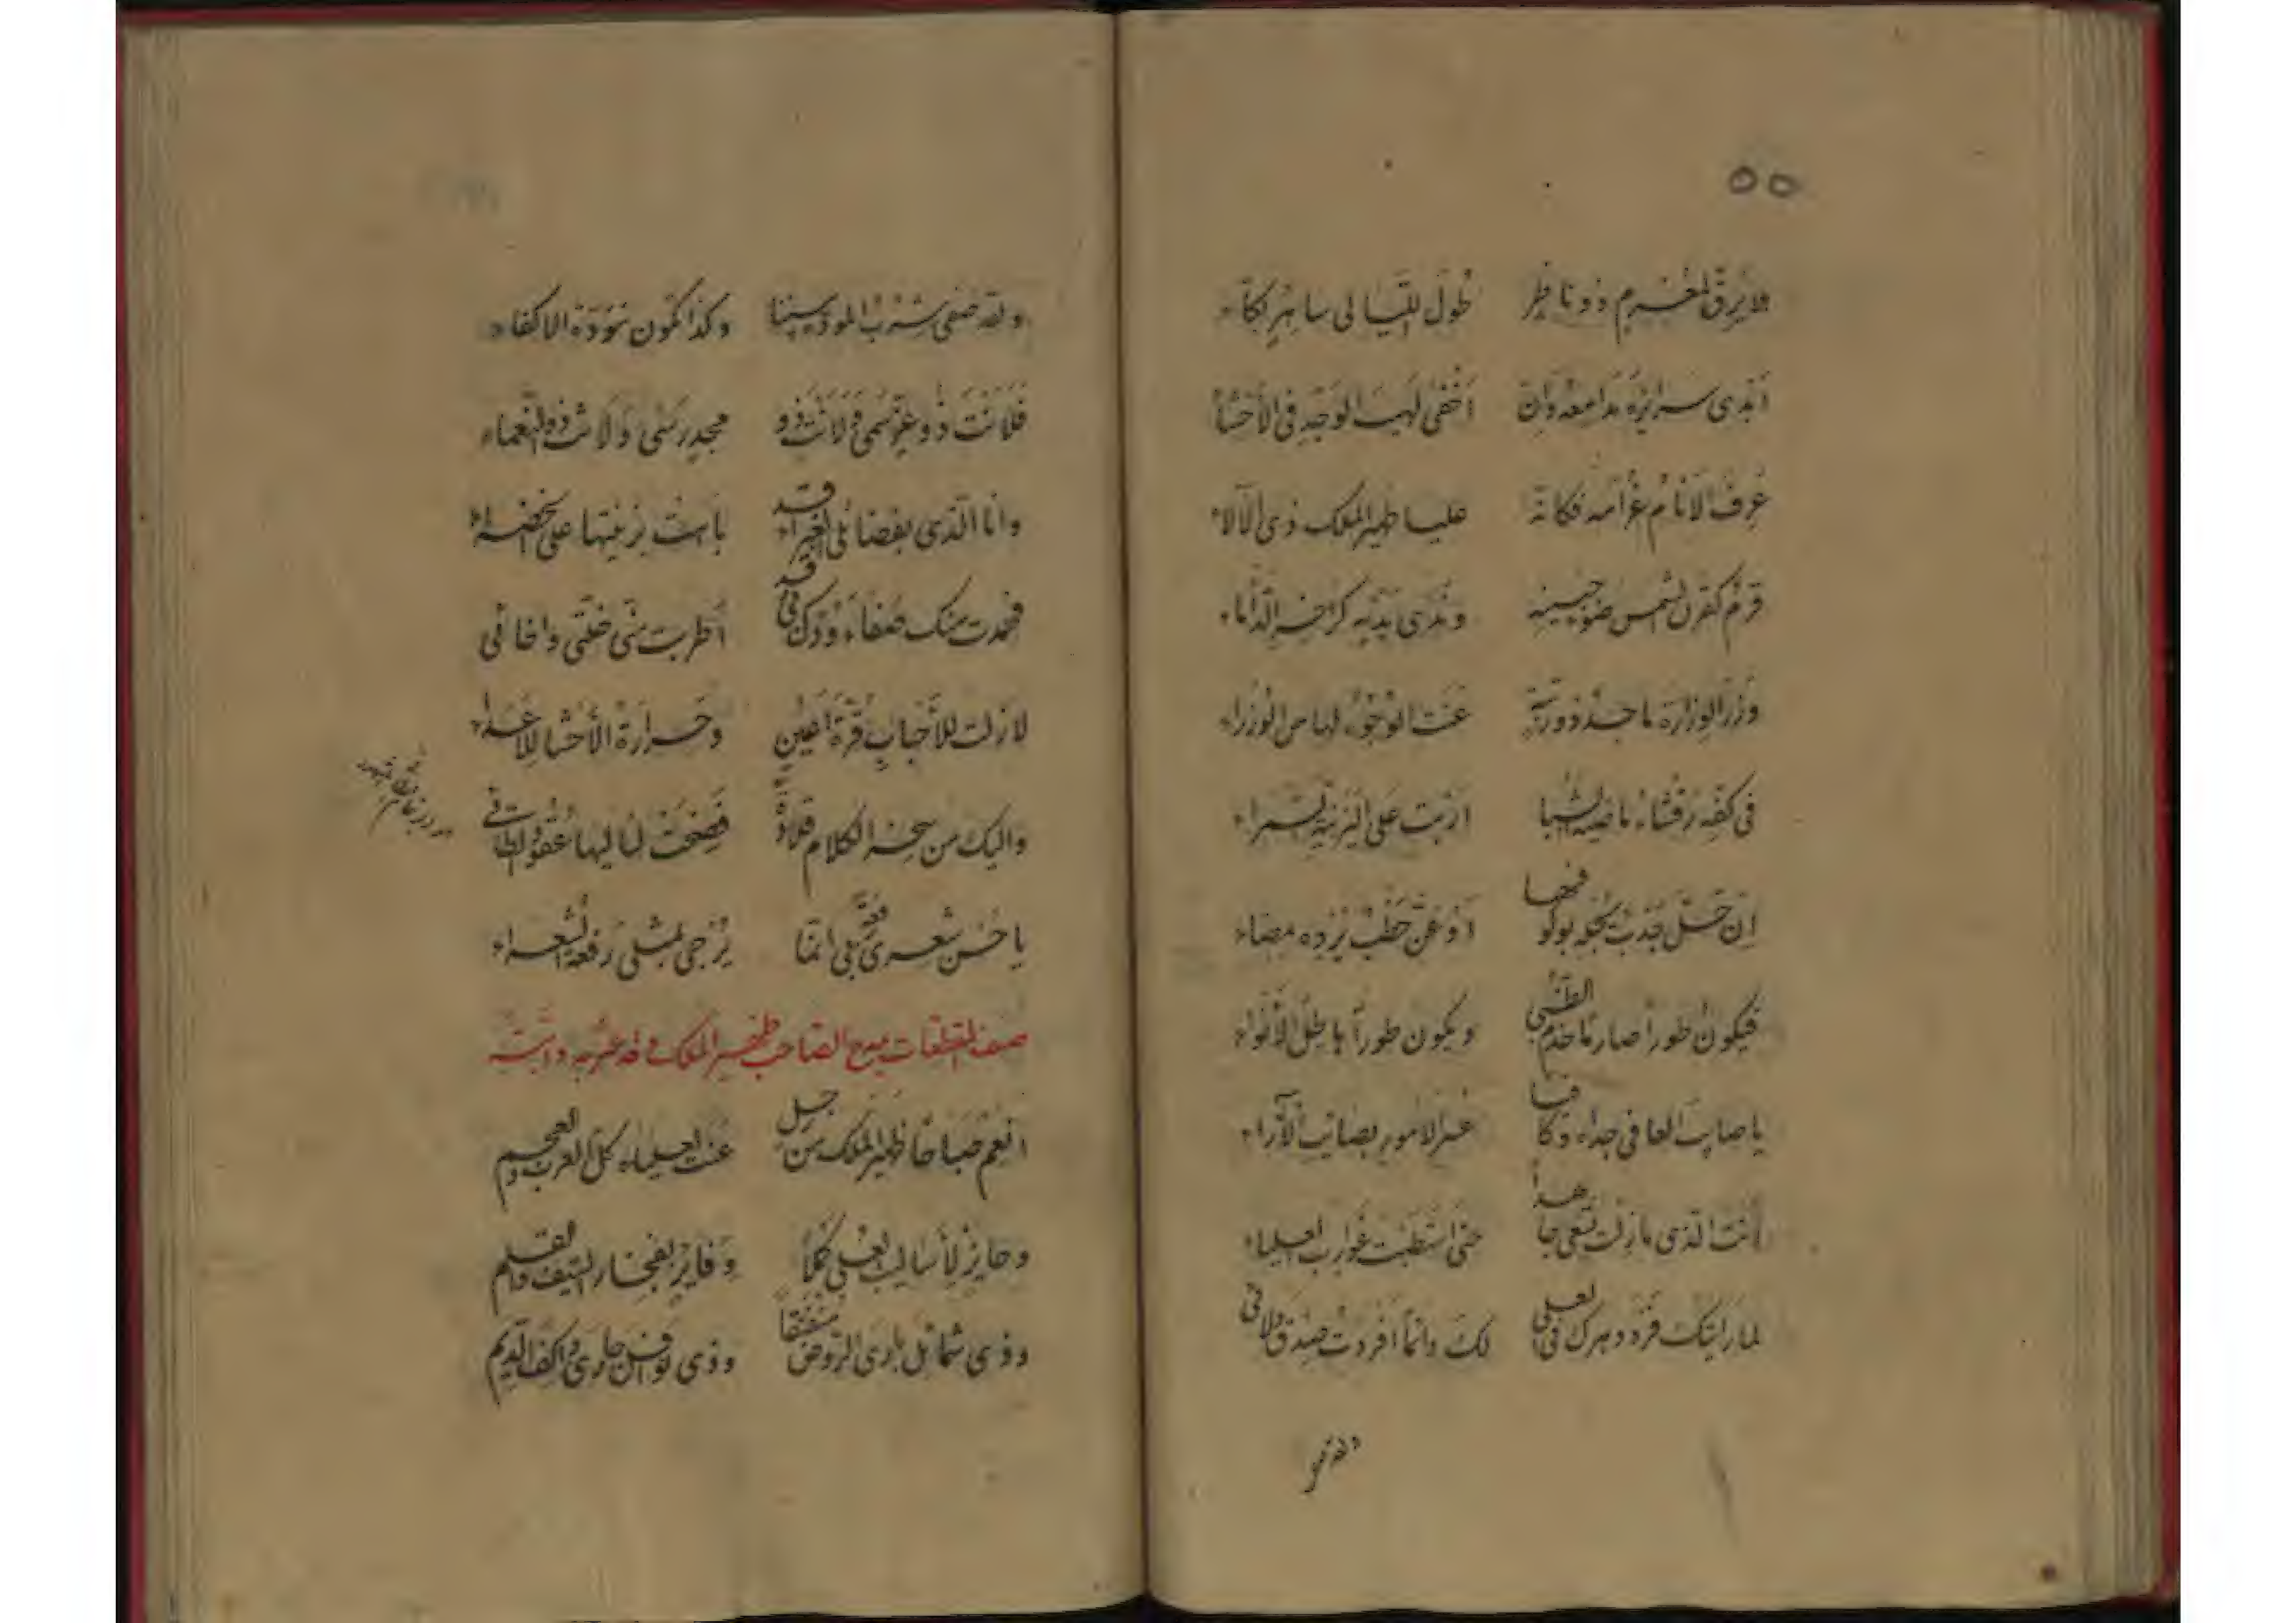 ٥٥
لا يرق لمغرم ذو ناظر طول الليالى ساهر بكاء
أبدى سرايره مدامعه وان أخفى لهيب الوجد فى الأحشاء
عرف الانام غرامه فكانه عليا ظهير الملك ذى الآلاء
قرم كقرن الشمس ضوء جبينه وندى يديه كزاخر الدأماء
وزر الوزارة ماجد ذو رتبة عنت الوجوه لها من الوزراء
فى كفه رقشاء ماضية الشبا اربت على اليزنية السمراء
ان حل جدب يجوبو أو عن خطب يزده مضاء
فيكون طورا صارما خذم الظبى ويكون طورا هاطل الأنواء
يا صايب العافى جداه وكا فيا الامور بصائب الآراء
أنت الذى مازلت تبغى جاهدا حتى استطبت غوارب العلياء
لما رايتك فرد دهرك فى العلى لك دائما افردت صدق ولائى
ولقد
ولقد صفى شرب المودة بيننا وكذا تكون مودة الاكفاء
فلانت ذو عز سمى ولانت ذو مجد رسى ولانت ذو النعماء
وانا الذى بفضائلى الغبراء قد باهت بزينتها على الخضراء
فحمدت منك صفاء ودك فى اطربت منى خلتى واخائى
لازلت للأحباب قرة اعين وحرارة الأحشا للأعداء
واليك من سحر الكلام قلادة فضحت لئاليها عقود الطائى
يا حسن شعرى رفعة تبغى انما يزجى لمثلى رفعة الشعراء
صنف المقطعات يمدح الصاحب ظهير الملك
انعم صباحا ظهير الملك من رجل عنت لعلياه كل العرب والعجم
وحايز لأساليب العلى كملا وفايز بفخار السيف والقلم
وذى شمائل بارى الروض وذى نوافل جارى واكف الديم